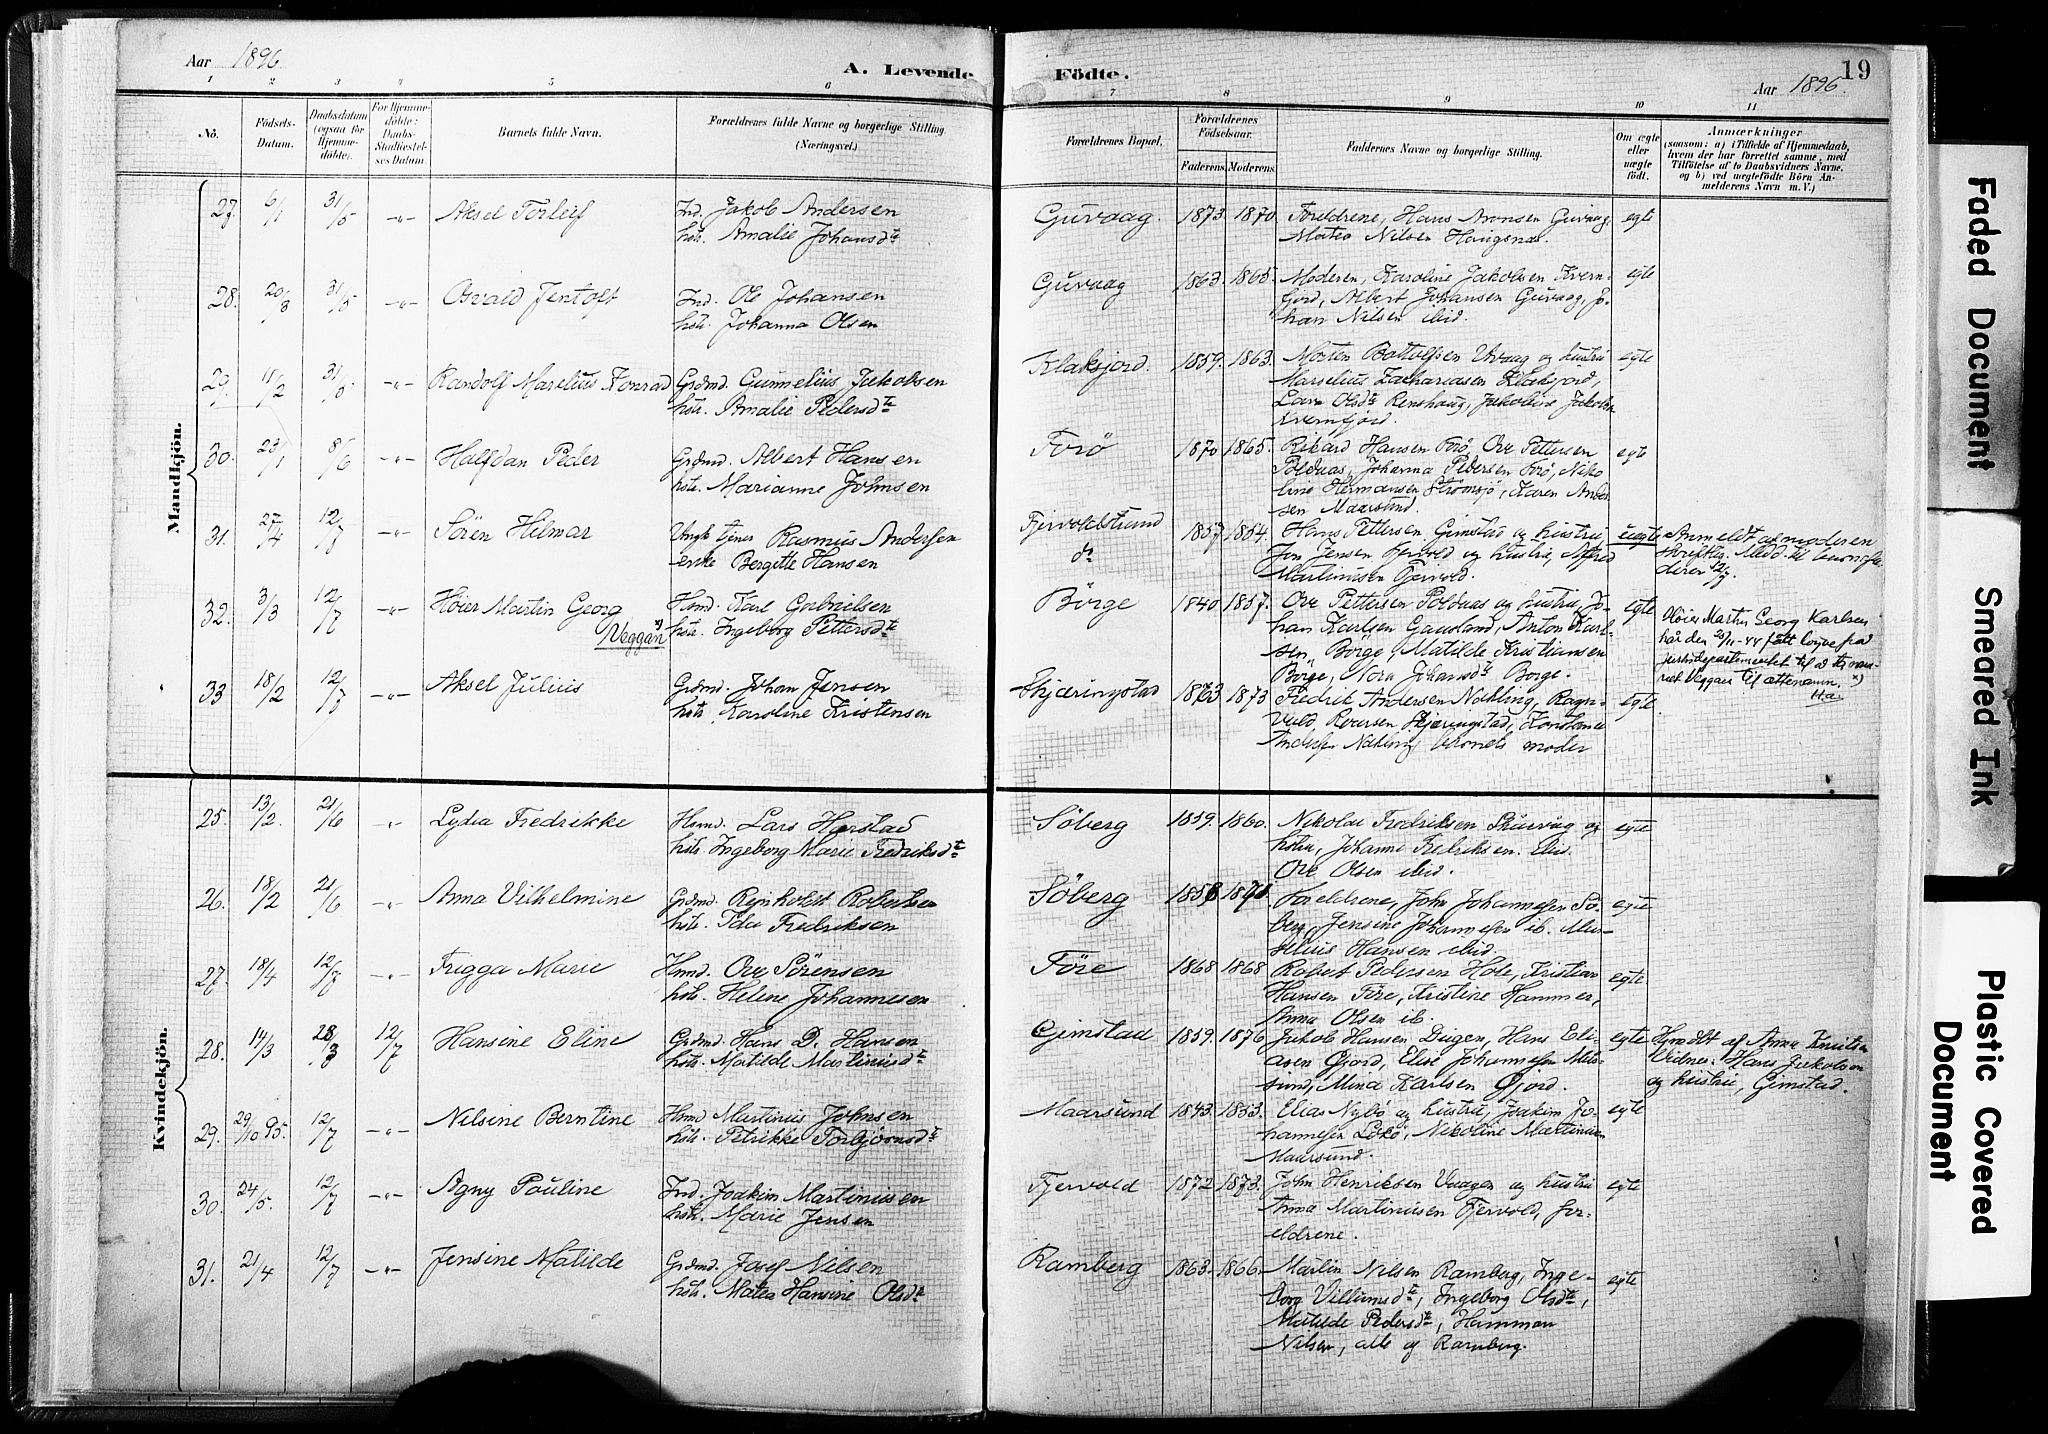 Aar 1896
A. Levende Födte.
Aar 1896.
19
1 2 3 4 5 6 7 8 9 10 11
No.
Födsels-
Datum.
Daabsdatum
(ogsaa for
Hjemme-
döbte).
For Hjemme-
döbte:
Daabs-
Stadfæstel-
ses Datum.
Barnets fulde Navn.
Forældrenes fulde Navne og borgerlige Stilling.
(Næringsvei.)
Forældrenes Bopæl.
Forældrenes
Födselsaar.
Faderens
Moderens
Faddernes Navne og borgerlige Stilling.
Om ægte
eller
uægte
födt.
Anmærkninger
(saasom: a) i Tilfælde af Hjemmedaab,
hvem der har forrettet samme, med
Tilföielse af to Daabsvidners Navne.
og b) ved uægtefödte Börn An-
melderens Navn m. V.)
Mandkjön.
27. 6/1 31/5 -"- Aksel Torleif
Ind. Jakob Andersen
hstr. Amalie Johansdte
Guvaag. 1873. 1870.
Foreldrene, Hans Aronsen Guvaag,
Matea Nilsen Haugsnes.
egte
28. 20/3 31/5 -"- Osvald Jentoft
Ind. Ole Johansen
hstr. Johanna Olsen
Guvaag 1863. 1865.
Moderen, Karoline Jakobsen Kvern-
fjord, Albert Johansen Guvaag, Jo-
han Nilsen ibid.
egte
29. 11/2 31/5 -"- Randolf Marelius Konrad
Grdmd. Gunnelius Jakobsen
hstr. Amalie Pedersdte
Klaksjord. 1859. 1863.
Morten Bottolfsen Uvaag og hustru
Marselius Zachariasen Klaksjord,
Lava Olsdte Renshaug, Jakobine Jakobsen
Kvernfjord.
egte
30. 23/1 8/6 -"- Halfdan Peder
Grdmd. Albert Hansen
hstr. Marianne Johnsen
Forö 1870 1865.
Rikard Hansen Forö, Ove Pettersen
Poldnas, Johanna Pedersen Forö, Niko-
line Hermansen Stromsjö, Karen Ander-
sen Maarsund.
egte
31. 27/4 12/7 -"- Sören Hilmar
Ungk. tjener Rasmus Andersen
enke Bergitte Hansen
Fjervoldstrand
do
1857. 1854.
Hans Pettersen Gimstad og hustru,
Jon Jensen Fjervold og hustru, Alfred
Martinusen Fjervold.
uegte
Anmeldt af moderen
skriftlig. Medd. til
12/7.
32. 3/3 12/7 -"- Höier Martin Georg
Veggan x)
Hsmd. Karl Gabrielsen
hstr. Ingeborg Pettersdte
Börge 1840 1857.
Ove Pettersen Poldnas og hustru, Jo-
han Karlsen Gausland, Anton Karl-
sen, Borge, Matilde Kristiansen
Börge, Nora Johansdte Borge.
egte
Höier Martin Georg Karlsen
har den 2/11-44 fått lov fra
justisdepartementet til å ta nav-
net Veggan til ættenavn. x)
Ha.
33 18/2 12/7 -"- Aksel Julius
Grdmd. Johan Jensen
hstr. Karoline Kristensen
Skjæringstad 1873 1873
Fredrik Andersen Nokling, Ragn-
vald Roarsen Skjæringstad, Konstance
Andersen Nokling barnets moder
egte.
Kvindekjön.
25. 13/2. 21/6 -"- Lydia Fredrikke
Hsmd. Lars Harstad
hstr. Ingeborg Marie Fredriksdte
Söberg 1859. 1860.
Nikolai Fredriksen Skurvaag og
hstru, Johanne Fredriksen. ibid.
Ove Olsen ibid.
egte
26. 18/2 21/6 -"- Anna Vilhelmine
Grdmd. Reinholdt Robertsen
hstr. Ida Fredriksen
Söberg
Foreldrene, John Johannesen Sö-
berg, Jensine Johannesen ib. Mar-
selius Hansen ibid.
egte
27. 18/4 12/7 -"- Frigga Marie
Hsmd. Ove Sörensen
hstr. Helene Johannesen
Före 1868 1868
Robert Pedersen Hole, Kristian
Hansen Före, Kristine Hammer,
Anna Olsen ib.
egte
28. 14/3 28/3 12/7 Hansine Eline
Grdmd. Hans D. Hansen
hstr. Matilde Martinusdte
Gimstad 1859. 1876
Jakob Hansen Dugen, Hans Eli-
asen Gjord, Elise Johannesen Mar-
sund, Mina Karlsen Gjord.
egte
Hjdöbt af Anna Knutsen
Vidner: Hans Jakobsen
og hustru, Gimstad.
29. 29/10 95. 12/7 -"- Nilsine Berntine
Hsmd Martinus Johnsen
hstr. Petrikke Torbjörnsdte
Maarsund 1843. 1853.
Elias Nybö og hustru, Joakim Jo-
hannesen Lökö, Nikoline Martinusen
Maarsund.
egte
30. 24/5. 12/7 -"- Agny Pauline
Ind. Joakim Martinussen
hstr. Marie Jensen
Fjervold 1872 1873.
John Henriksen Vaagen og hustru
Anna Martinusen Fjervold, for-
eldrene.
egte
31. 21/4 12/7 -"- Jensine Matilde
Grdmd. Josef Nilsen
hstr. Matea Hansine Olsdte
Ramberg 1863. 1866.
Martin Nilsen Ramberg, Inge-
borg Villumsdte, Ingeborg Olsdte,
Matilde Pedersdte, Hamman
Nilsen, alle af Ramberg.
egte
Faded Document
Smeared Ink
Plastic Covered
Document